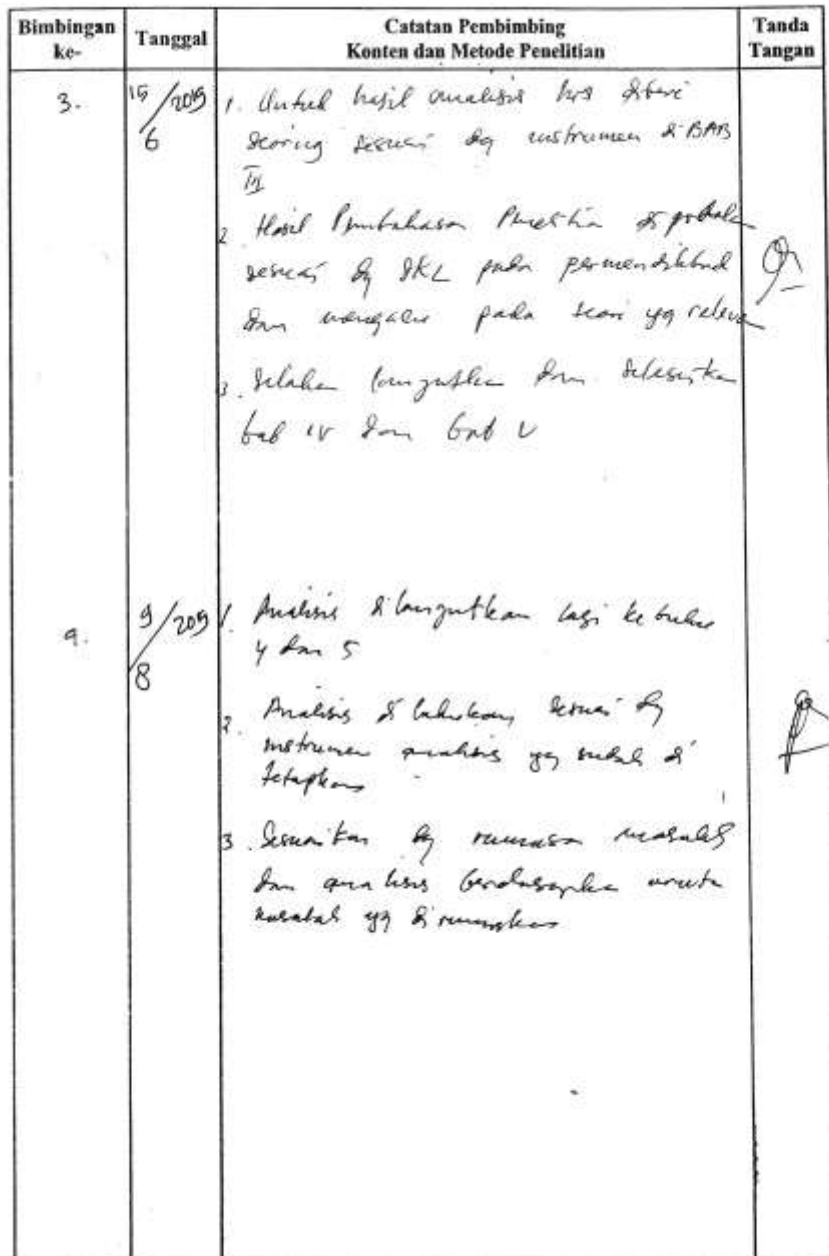 Bimbingan ke-
Tanggal
Catatan Pembimbing
Konten dan Metode Penelitian
Tanda Tangan
3.
15/2019
6
1. Untuk hasil analisis hrs diberi
scoring sesuai dg instrumen di BAB
III
2. Hasil Pembahasan Penelitian
sesuai dg SKL pada permendikbud
dan mengacu pada teori yg relevan
3. Silahkan lanjutkan dan selesaikan
bab IV dan bab V
9/2019
8
1. Analisis dilanjutkan lagi ke buku
4 dan 5
2. Analisis dilakukan sesuai dg
instrumen analisis yg sudah di
tetapkan
3. Sesuaikan dg rumusan masalah
dan analisis berdasarkan urutan
masalah yg dirumuskan